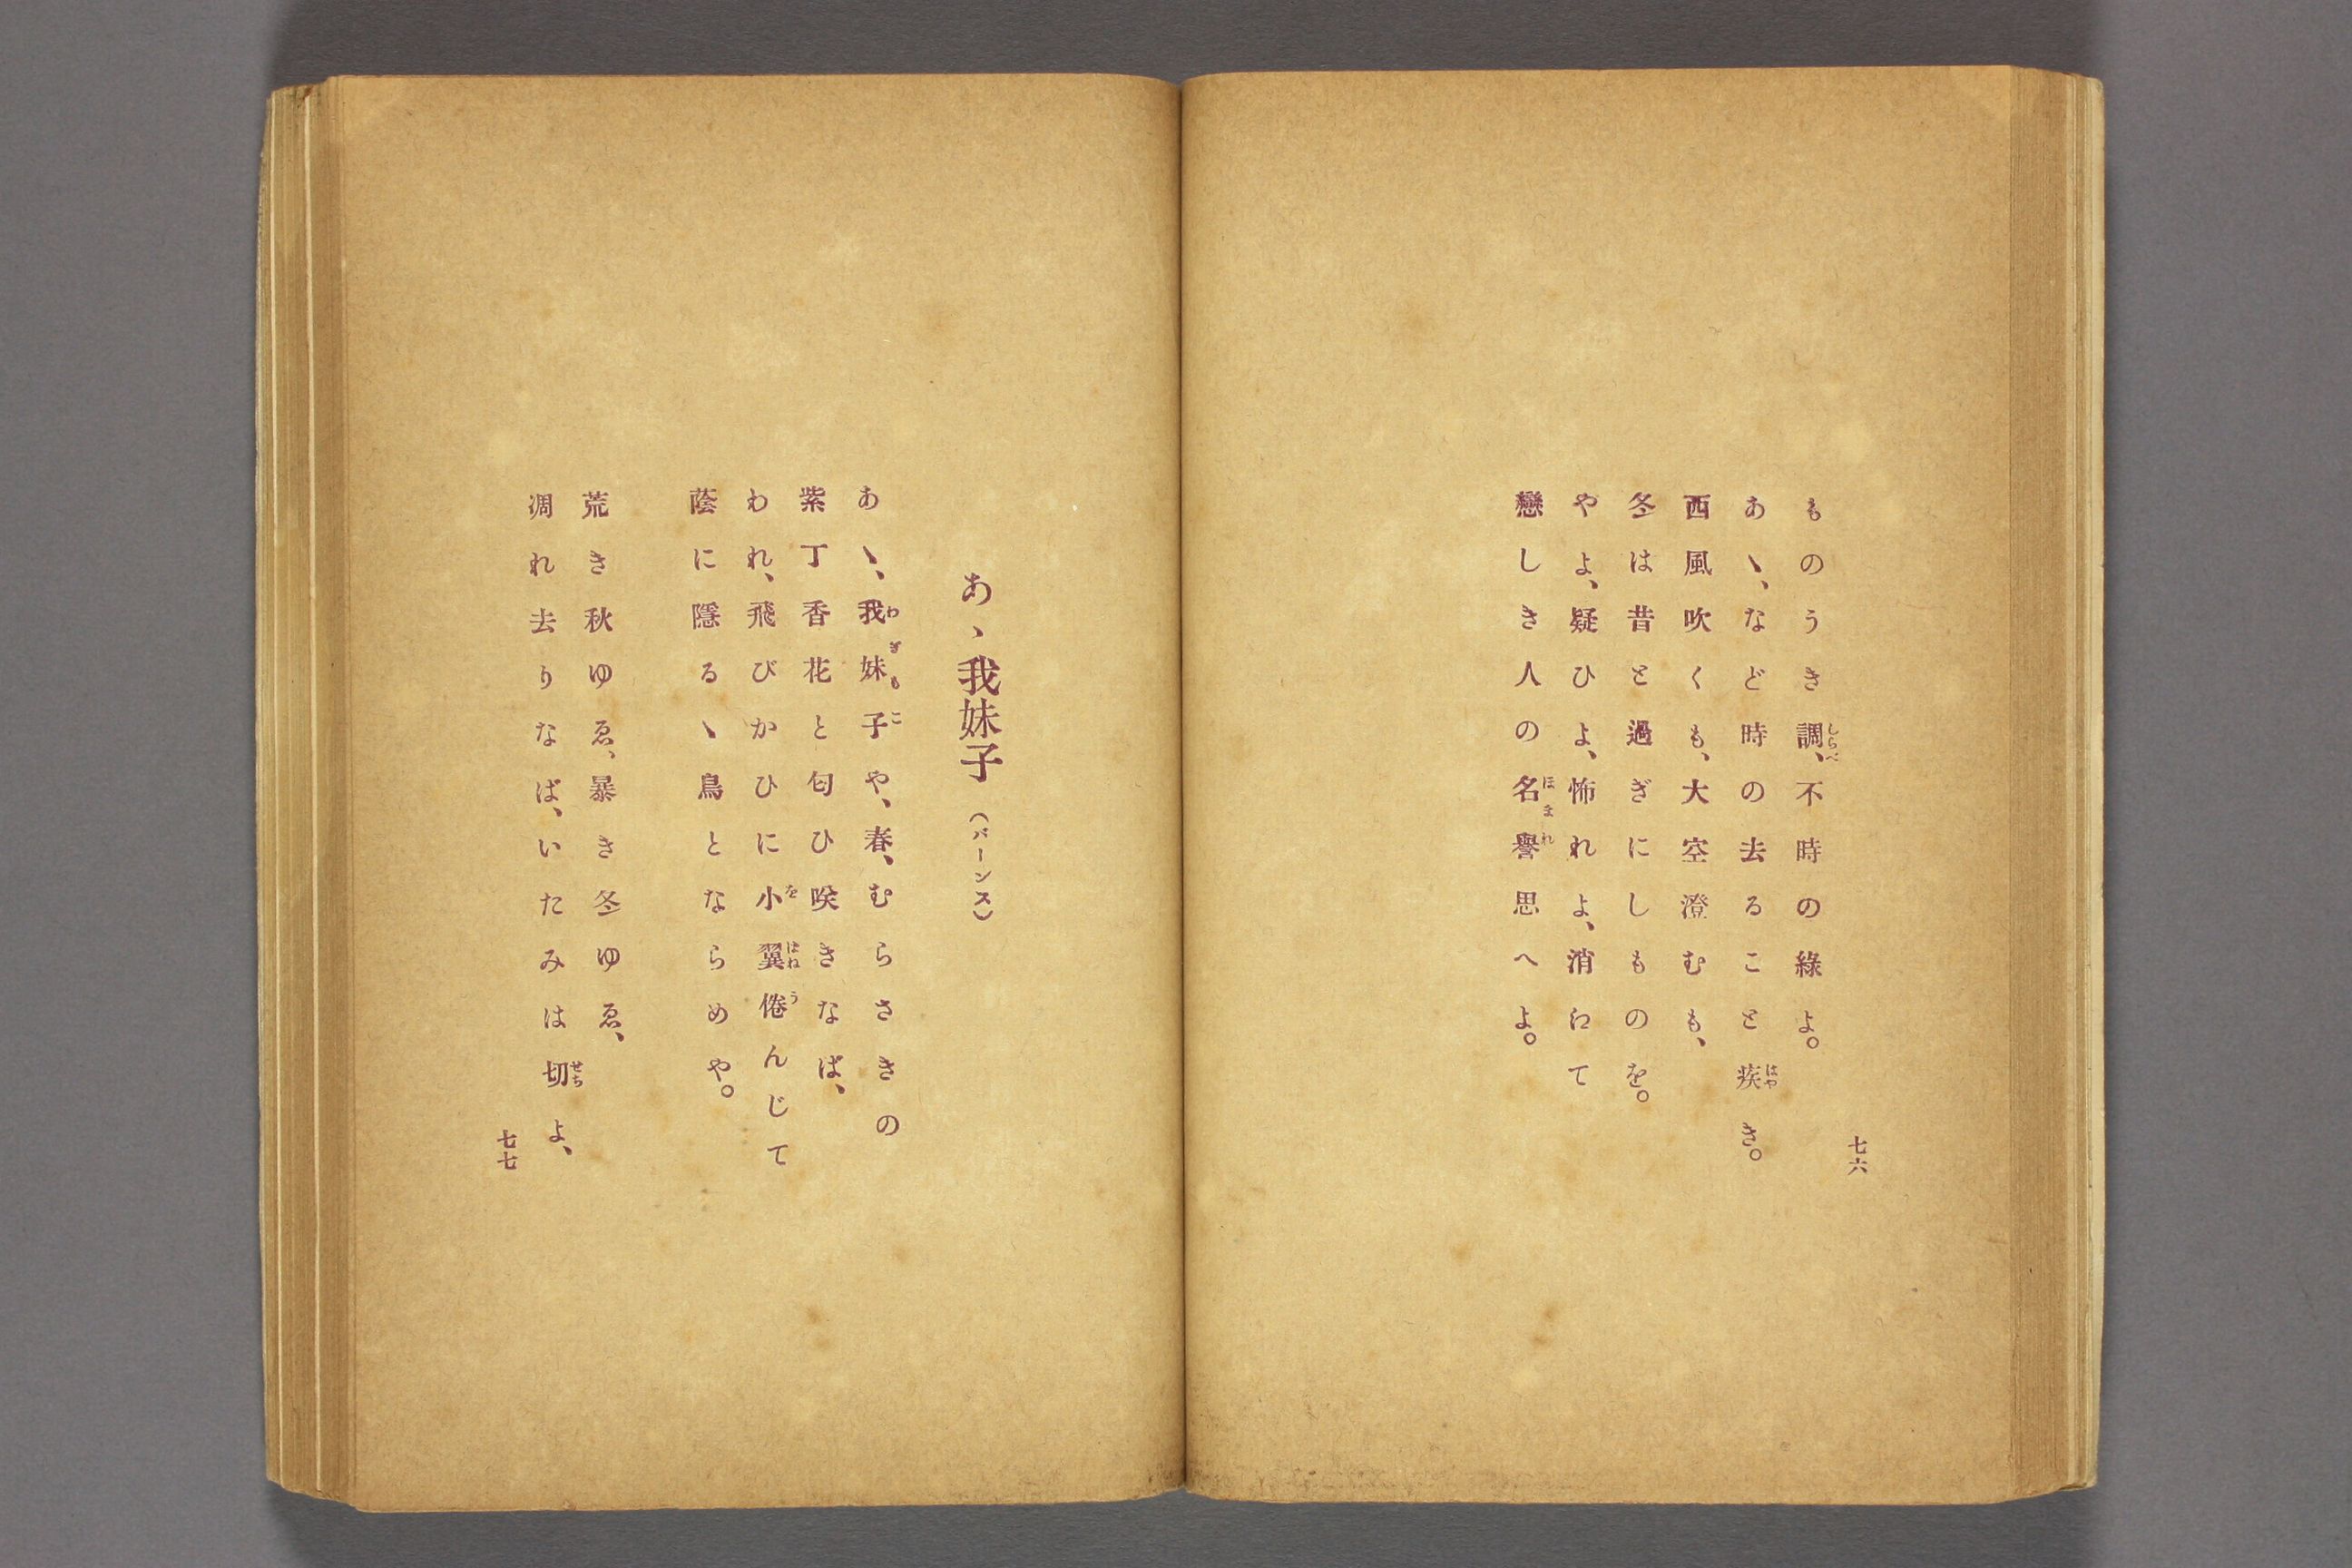 七六
ものうき調、不時の綠よ。
あゝ、など時の去ること疾き。
西風吹くも、大空澄むも、
冬は昔と過ぎにしものを。
やよ、疑ひよ、怖れよ、消えて
戀しき人の名譽思へよ。
あゝ我妹子（バーンス）
あゝ、我妹子や、春、むらさきの
紫丁香花と匂ひ咲きなば、
われ、飛びかひに小翼倦んじて
蔭に隱るゝ鳥とならめや。
荒き秋ゆゑ、暴き冬ゆゑ、
凋れ去りなば、いたみは切よ、
七七